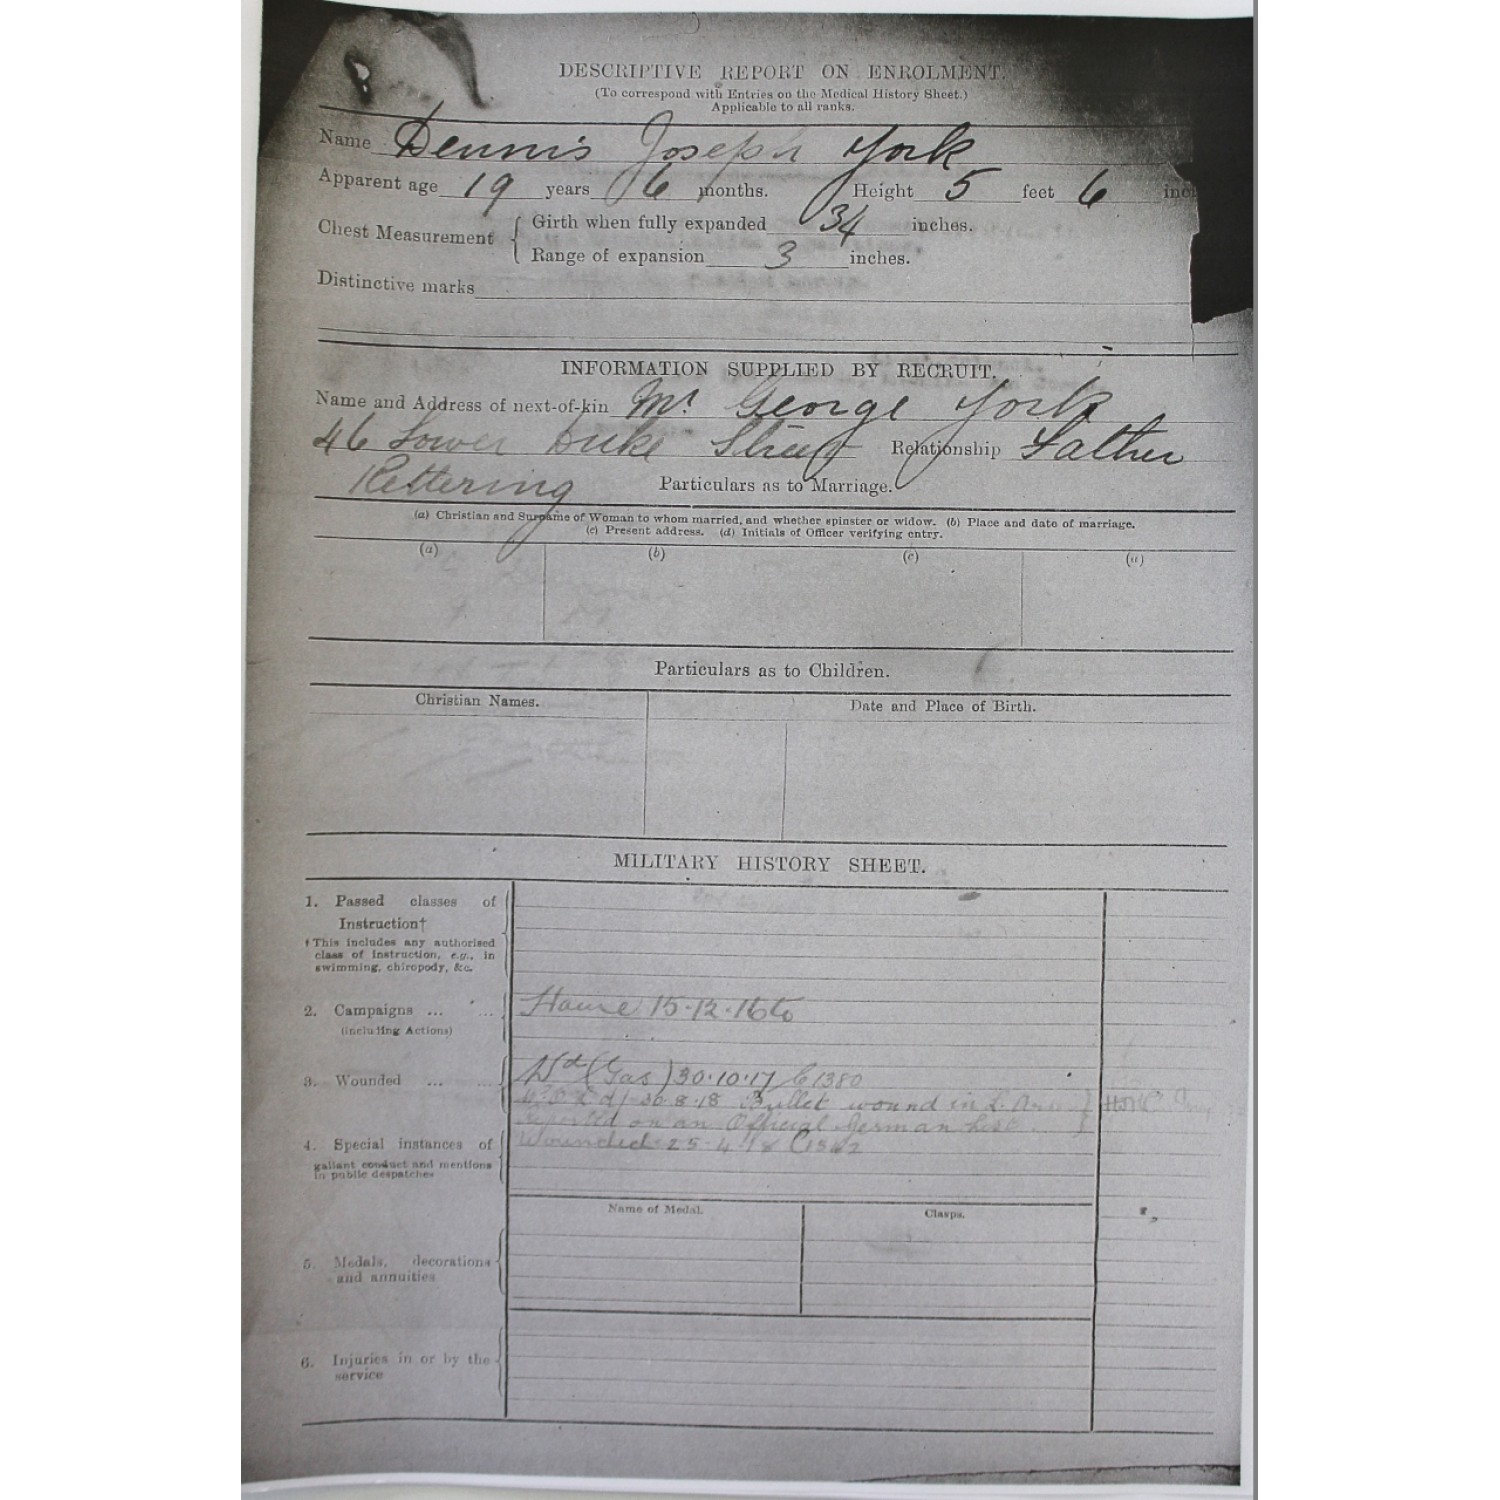 DESCRIPTIVE REPORT ON ENROLMENT.
(To correspond with Entries on the Medical History Sheet.)
Applicable to all ranks.
Name Dennis Joseph York
Apparent age 19 years 6 months. Height 5 feet 6 inc
Chest Measurement { Girth when fully expanded 34 inches.
Range of expansion 3 inches.
Distinctive marks
INFORMATION SUPPLIED BY RECRUIT.
Name and Address of next-of-kin Mr George York
46 Lower Duke Street Relationship Father
Kettering Particulars as to Marriage.
(a) Christian and Surname of Woman to whom married, and whether spinster or widow. (b) Place and date of marriage.
(c) Present address. (d) Initials of Officer verifying entry.
(a) (b) (c) (d)
Particulars as to Children.
Christian Names. Date and Place of Birth.
MILITARY HISTORY SHEET.
1. Passed classes of
Instruction†
†This includes any authorised
class of instruction, e.g., in
swimming, chiropody, &c.
2. Campaigns ... ... Home 15.12.16 to
(including Actions)
3. Wounded ... ... Wd (Gas) 30.10.17 1380
30.8.18 Bullet wound in L. Arm }
reported on an Official German List.
4. Special instances of Wounded 25.4.18
gallant conduct and mentions
in public despatches
Name of Medal. Clasps.
5. Medals, decorations
and annuities
6. Injuries in or by the
service